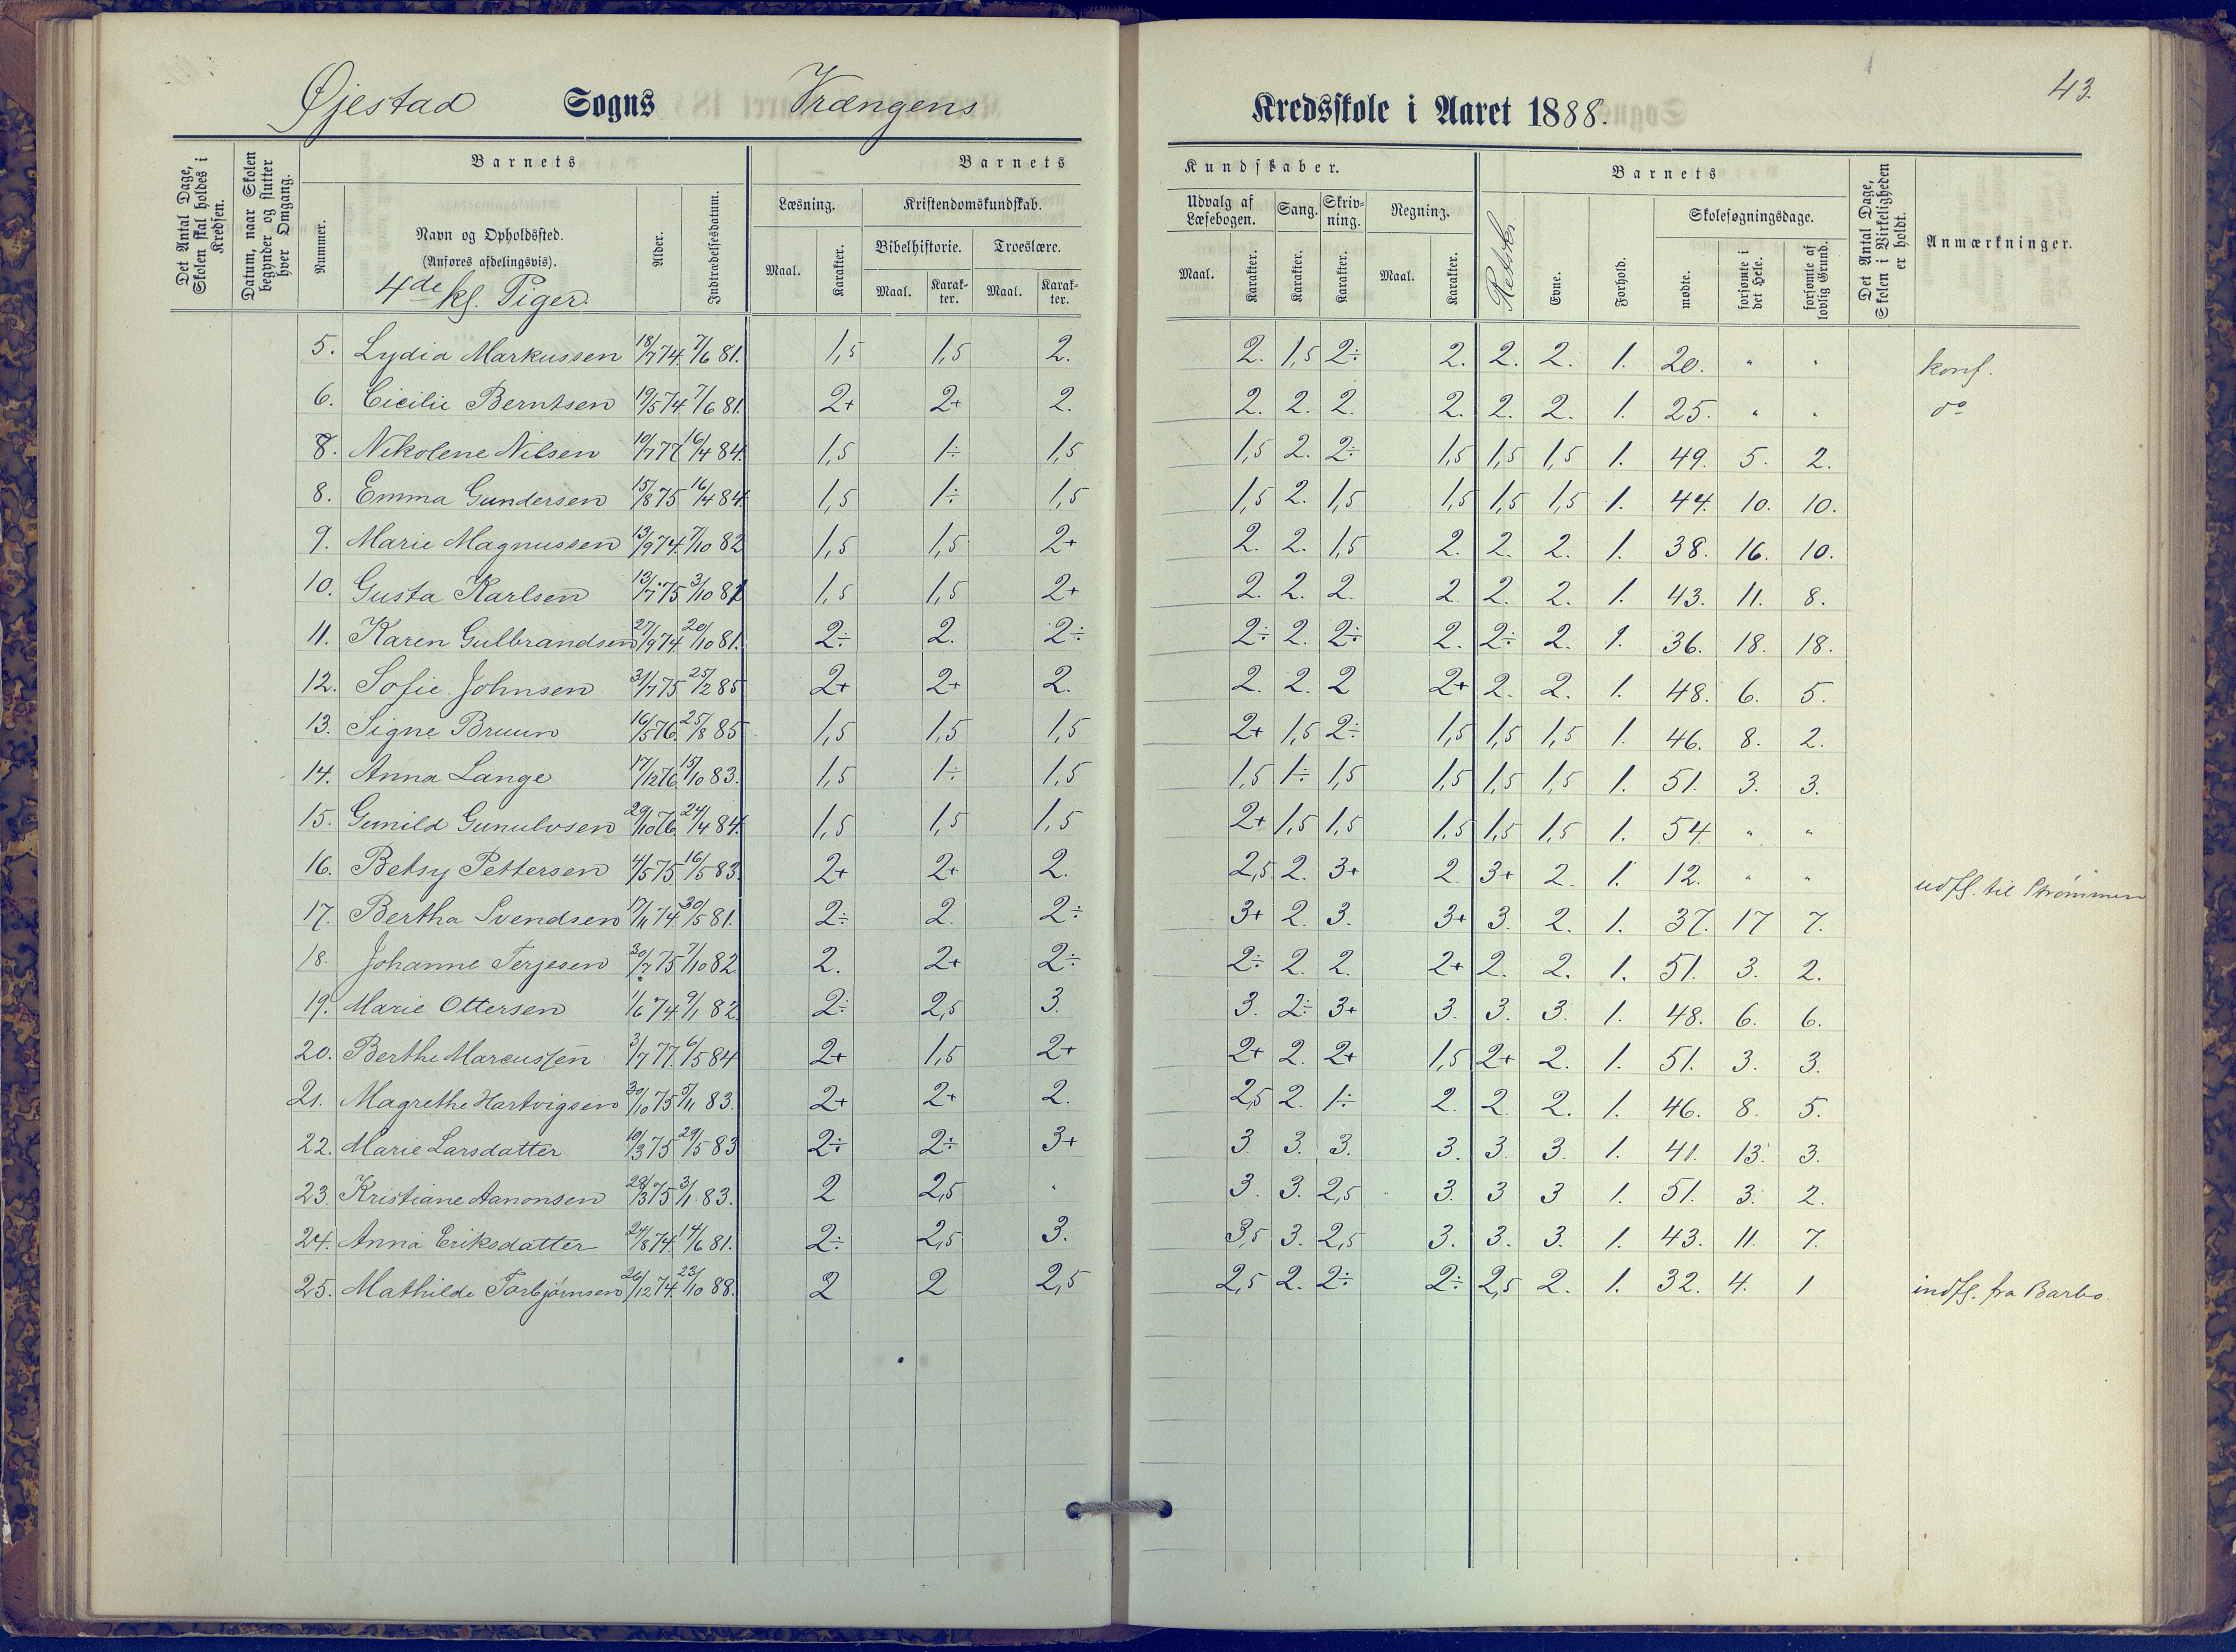 43.
Øjestad Sogns Vrængens Kredsskole i Aaret 1888.
Det Antal Dage, Skolen skal holdes i Kredsen.
Datum, naar Skolen begynder og slutter hver Omgang.
Barnets
Nummer.
Navn og Opholdssted.
(Anføres afdelingsvis).
4de kl. Piger.
Alder.
Indtrædelsesdatum.
Barnets Kundskaber.
Læsning.
Maal. Karakter.
Kristendomskundskab.
Bibelhistorie. Troeslære.
Maal. Karakter. Maal. Karakter.
Udvalg af Læsebogen. Sang. Skrivning. Regning.
Maal. Karakter. Karakter. Karakter. Maal. Karakter.
Barnets
Retskr. Evne. Forhold.
Skolesøgningsdage.
mødte. forsømte i det Hele. forsømte af lovlig Grund.
Det Antal Dage, Skolen i Virkeligheden er holdt.
Anmærkninger.
5. Lydia Markussen 18/7 74. 7/6 81. 1,5 1,5 2. 2. 1,5 2÷ 2. 2. 2. 1. 20. " " konf.
6. Cicilie Berntsen 19/5 74 7/6 81. 2+ 2+ 2. 2. 2. 2. 2. 2. 2. 1. 25. " " do
8. Nikolene Nilsen 10/7 77 16/4 84. 1,5 1÷ 1,5 1,5 2. 2÷ 1,5 1,5 1,5 1. 49. 5. 2.
8. Emma Gundersen 15/8 75 16/4 84. 1,5 1÷ 1,5 1,5 2. 1,5 1,5 1,5 1,5 1. 44. 10. 10.
9. Marie Magnussen 13/9 74. 7/10 82 1,5 1,5 2+ 2. 2. 1,5 2. 2. 2. 1. 38. 16. 10.
10. Gusta Karlsen 13/7 75 3/10 81 1,5 1,5 2+ 2. 2. 2. 2. 2. 2. 1. 43. 11. 8.
11. Karen Gulbrandsen 27/9 74. 20/10 81. 2÷ 2. 2÷ 2÷ 2. 2÷ 2. 2÷ 2. 1. 36. 18. 18.
12. Sofie Johnsen 31/7 75 25/2 85 2+ 2+ 2. 2. 2. 2 2+ 2. 2. 1. 48. 6. 5.
13. Signe Bruun 16/5 76. 25/8 85 1,5 1,5 1,5 2+ 1,5 2÷ 1,5 1,5 1,5 1. 46. 8. 2.
14. Anna Lange 17/12 76 15/10 83. 1,5 1÷ 1,5 1,5 1÷ 1,5 1,5 1,5 1,5 1. 51. 3. 3.
15. Gunild Gunulvsen 29/10 76. 24/4 84. 1,5 1,5 1,5 2+ 1,5 1,5 1,5 1,5 1,5 1. 54. " "
16. Betsy Pettersen 4/5 75 16/5 83. 2+ 2+ 2. 2,5 2. 3+ 2. 3+ 2. 1. 12. " " udfl. til Strømmen
17. Bertha Svendsen 17/11 74. 30/5 81. 2÷ 2. 2÷ 3+ 2. 3. 3+ 3. 2. 1. 37. 17 7.
18. Johanne Terjesen 30/7 75 7/10 82. 2. 2+ 2÷ 2÷ 2. 2. 2+ 2. 2. 1. 51. 3. 2.
19. Marie Ottersen 1/6 74. 9/1 82. 2÷ 2,5 3. 3. 2÷ 3+ 3. 3. 3. 1. 48. 6. 6.
20. Berthe Marcussen 3/7 77. 6/5 84 2+ 1,5 2+ 2+ 2. 2+ 1,5 2+ 2. 1. 51. 3. 3.
21. Magrethe Hartvigsen 30/10 75 5/11 83. 2+ 2+ 2. 2,5 2. 1÷ 2. 2. 2. 1. 46. 8. 5.
22. Marie Larsdatter 10/3 75 29/5 83 2÷ 2÷ 3+ 3 3. 3. 3. 3. 3. 1. 41. 13. 3.
23. Kristiane Aanonsen 28/3 75 3/1 83. 2 2,5 " 3. 3. 2,5 3. 3 3 1. 51. 3. 2.
24. Anna Eriksdatter 24/8 74. 14/6 81. 2÷ 2,5 3. 3,5 3. 2,5 3. 3. 3. 1. 43. 11. 7.
25. Mathilde Torbjørnsen 26/12 74. 23/10 88. 2 2 2,5 2,5 2. 2÷ 2÷ 2,5 2. 1. 32. 4. 1 indfl. fra Barbo.